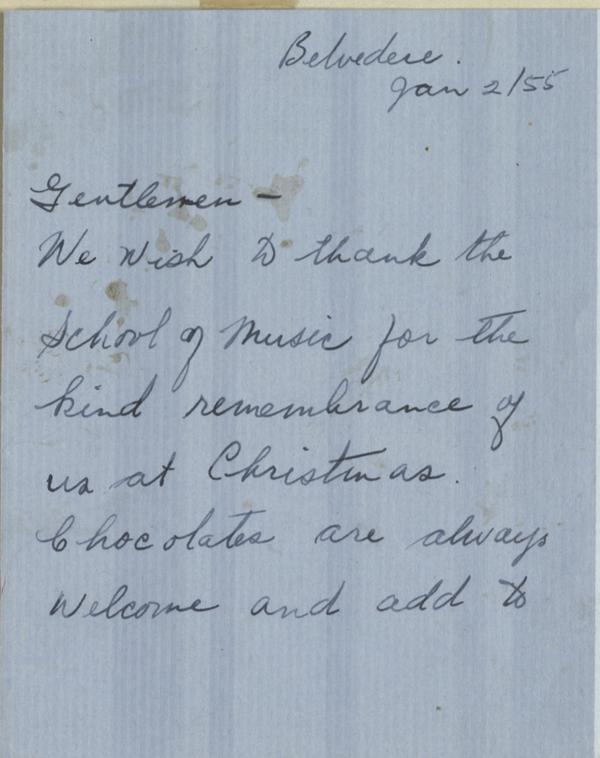 Belvedere.
Jan 2/55
Gentlemen –
We wish to thank the
School of Music for the
kind remembrance of
us at Christmas.
Chocolates are always
welcome and add to